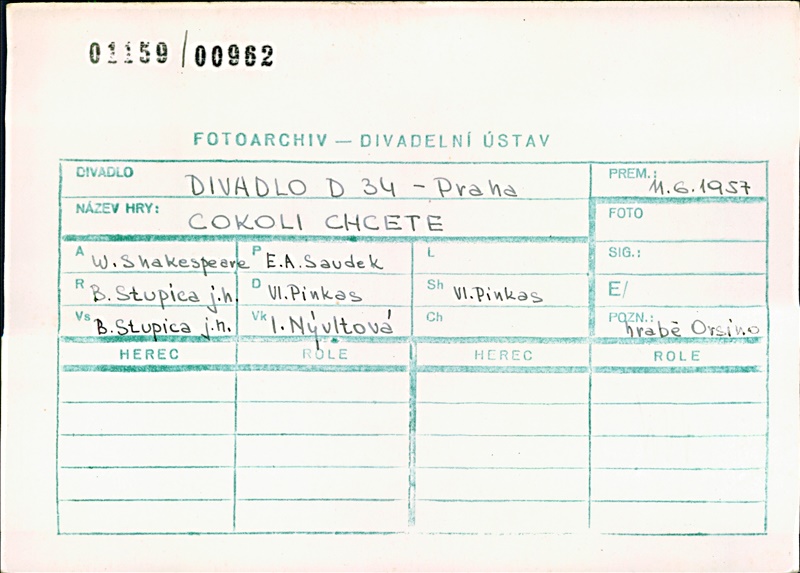 01159/00962
FOTOARCHIV — DIVADELNÍ ÚSTAV
DIVADLO DIVADLO D 34 - Praha PREM.: 11.6.1957
NÁZEV HRY: COKOLI CHCETE FOTO
A W. Shakespeare P E.A. Saudek L SIG.:
R B. Stupica j.h. D Vl. Pinkas Sh Vl. Pinkas E/
Vs B. Stupica j.h. Vk I. Nývltová Ch POZN.: hrabě Orsino
HEREC ROLE HEREC ROLE